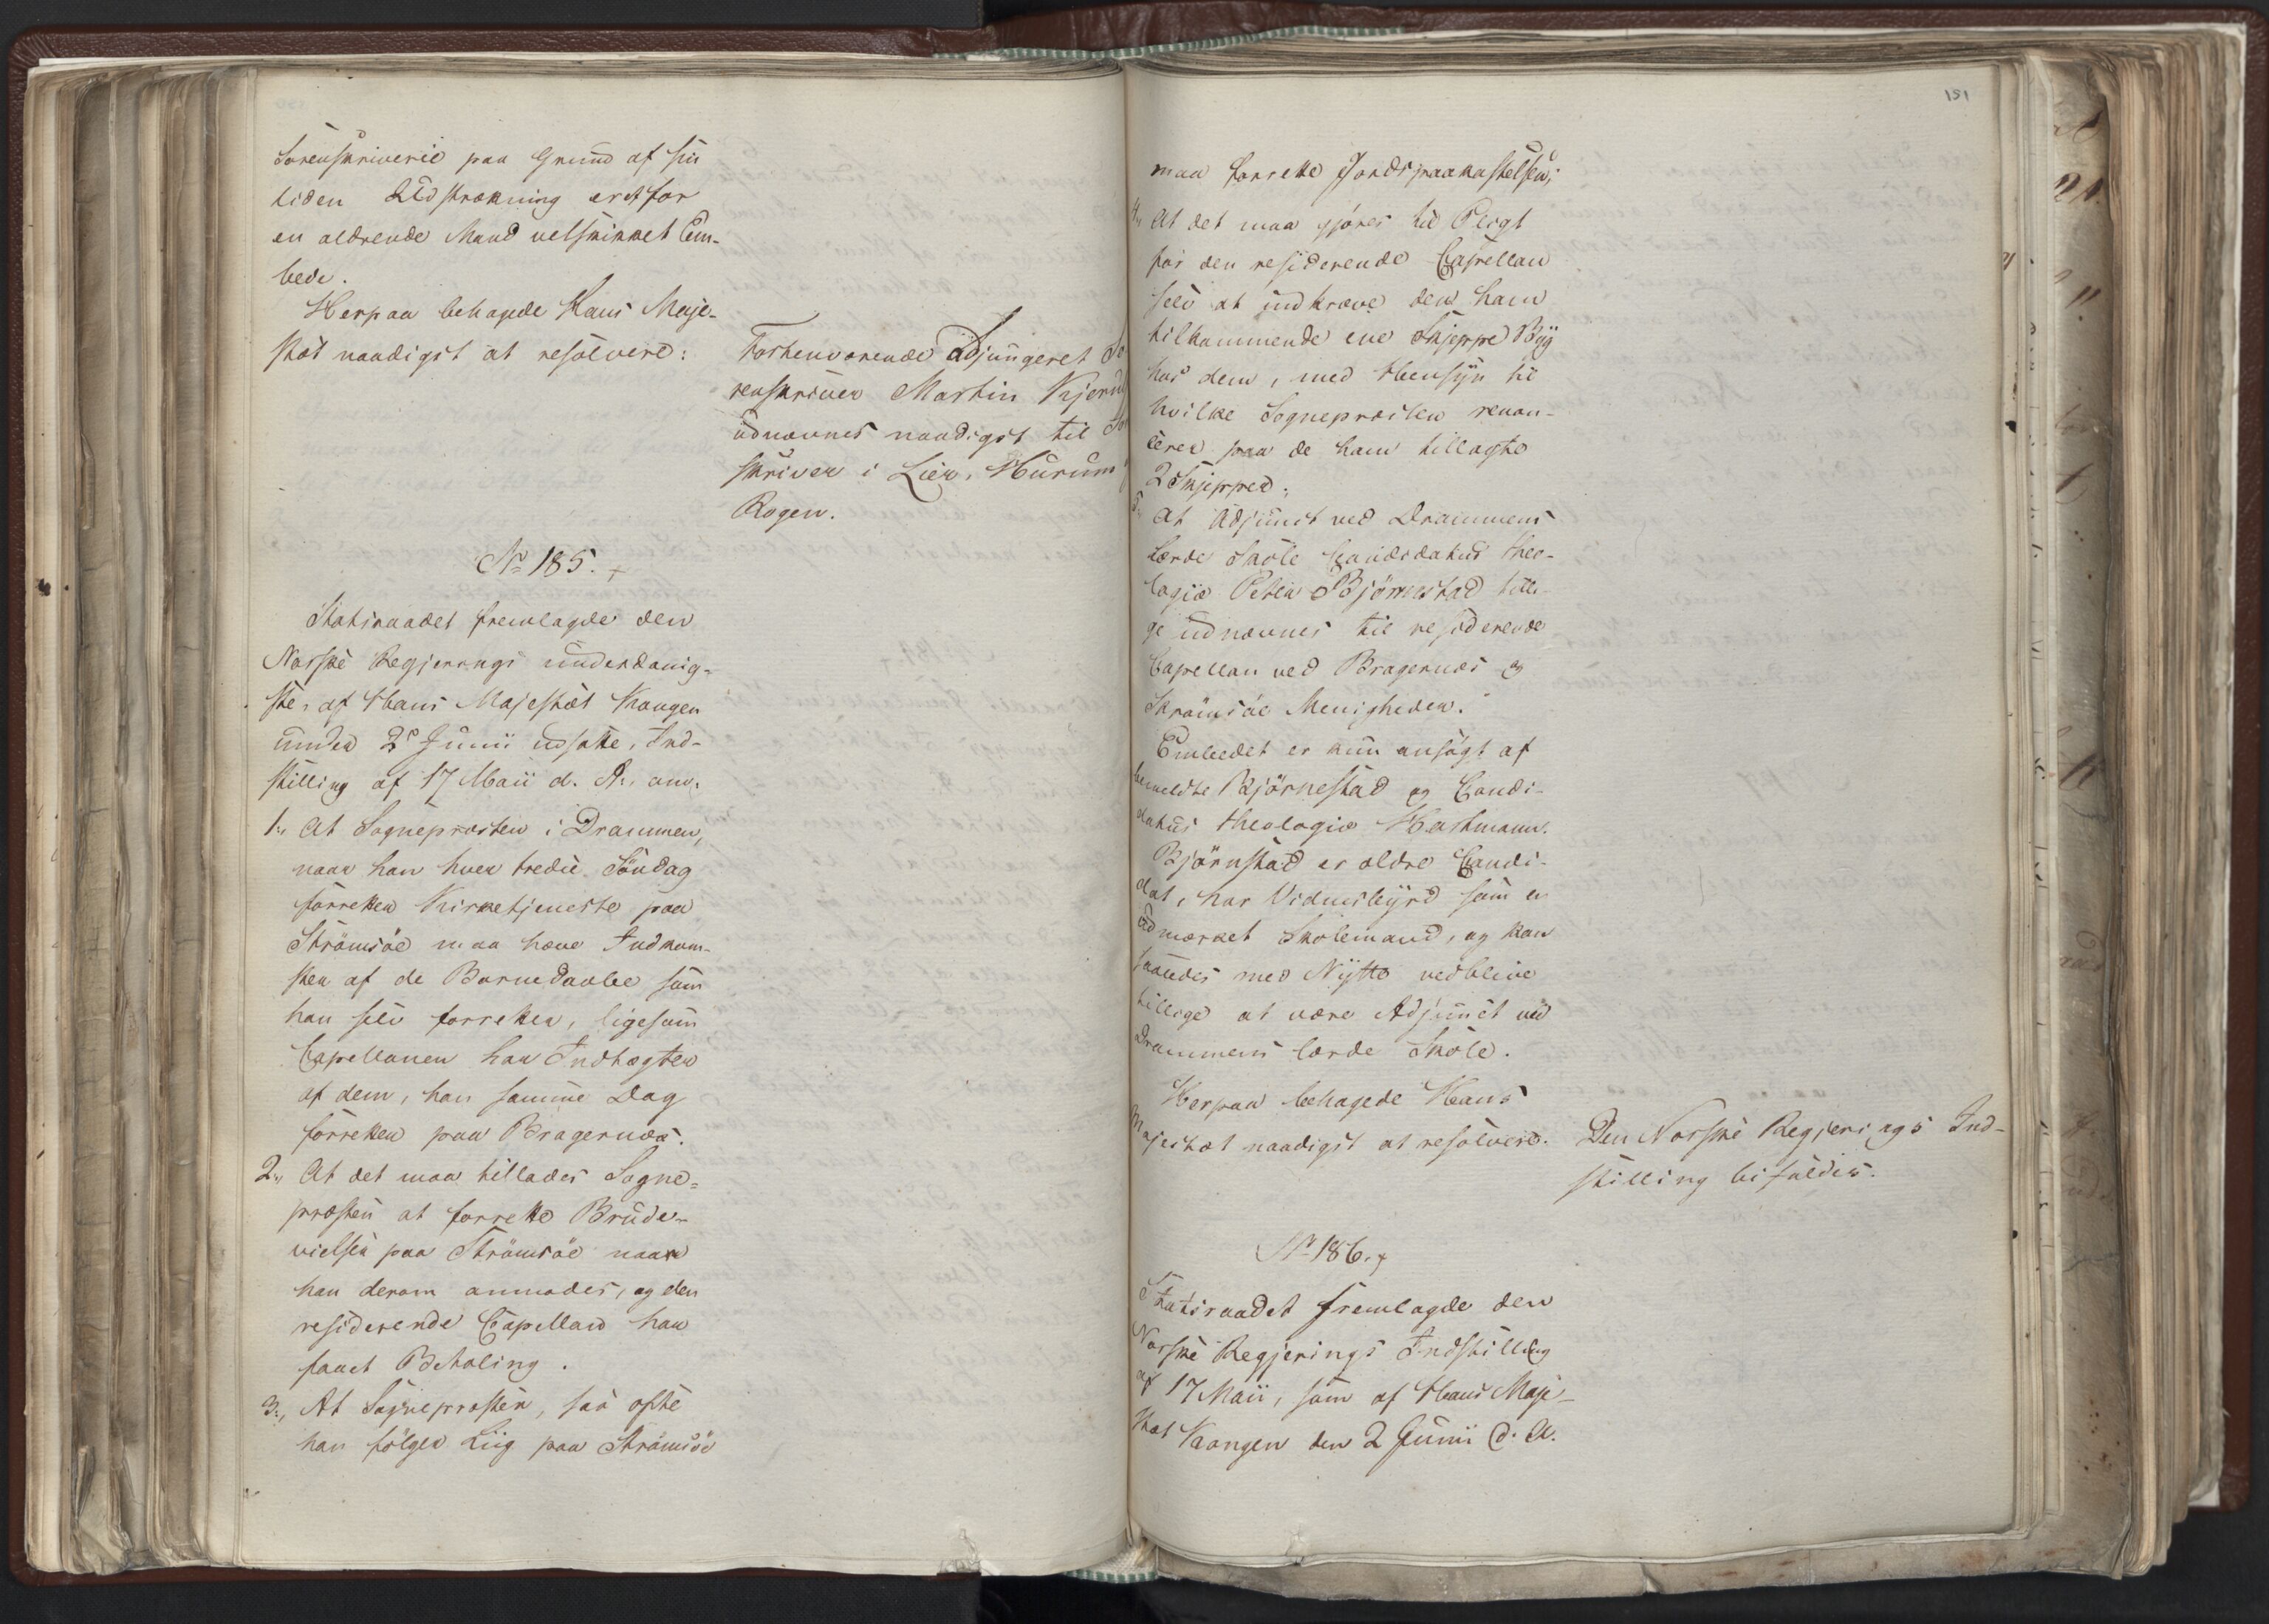 Sorenskriverie paa Grund af sin
liden Udstrækning er et for
en aldrende Mand velskikket Em-
bede.
Herpaa behagede Hans Maje-
stæt naadigst at resolvere:
Forhenværende Adjungeret So
renskriver Martin Kjerul
udnævnes naadigst til So
skriver i Lier, Hurum
Røgen.
No 185.
Statsraadet fremlagde den
Norske Regjerings underdanig-
ste, af Hans Majestæt Kongen
under 2d Junii udsatte, Ind-
stilling af 17 Maii d. A., om:
1., At Sognepræsten i Drammen,
naar han hver tredie Søndag
forretter Kirketjeneste paa
Strömsöe maa hæve Indkom-
sten af de Barnedaabe som
han selv forretter, ligesom
Capellanen har Indtægten
af dem, han samme Dag
forretter paa Bragernæs.
2., At det maa tillades Sogne-
præsten at forrette Brude-
vielser paa Strömsöe naar
han derom anmodes, og den
residerende Capellan har
faaet Betaling.
3., At Sognepræsten, saa ofte
han fölger Liig paa Strömsöe
151
maa forrette Jordspaakastelsen;
4., At det maa gjöres til Pligt
for den residerende Capellan
selv at indkræve den ham
tilkommende ene Skjeppe Byg
hos dem, med Hensyn til
hvilke Sognepræsten renon-
cerer paa de ham tillagte
2 Skjepper;
5., At Adjunct ved Drammens
lærde Skole Candidatus theo-
logiæ Peter Björnestad tilli-
ge udnævnes til residerende
Capellan ved Bragernæs og
Strömsöe Menigheder.
Embedet er kun ansögt af
bemeldte Björnestad og Candi-
datus theologiæ Hartmann.
Björnstad er ældre Candi-
dat, har Vidnesbyrd som en
udmærket Skolemand, og kan
saaledes med Nytte vedblive
tillige at være Adjunct ved
Drammens lærde Skole.
Herpaa behagede Hans
Majestæt naadigst at resolvere:
Den Norske Regjerings Ind-
stilling bifaldes.
No 186.
Statsraadet fremlagde den
Norske Regjerings Indstilling
af 17 Maii, som af Hans Maje-
stæt Kongen den 2 Junii d. A.